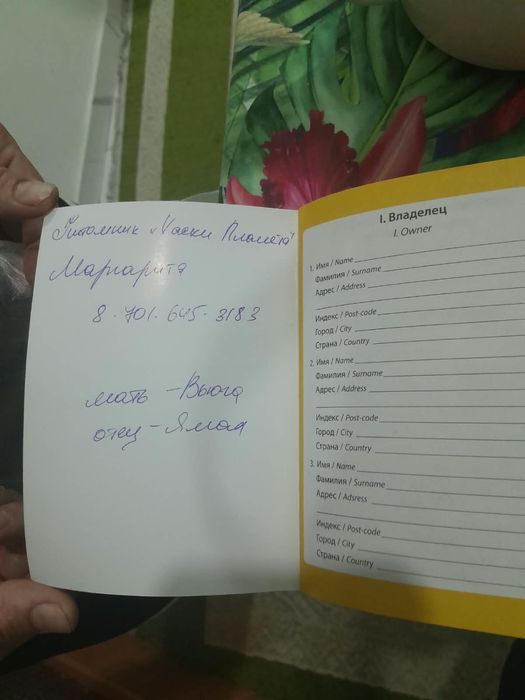 Питомник „Хаски Планета"
Маргарита
8.701.645.3183
мать - Вьюга
отец - Ямал
I. Владелец
I. Owner
1. Имя / Name
Фамилия / Surname
Адрес / Address
Индекс / Post-code
Город / City
Страна / Country
2. Имя / Name
Фамилия / Surname
Адрес / Address
Индекс / Post-code
Город / City
Страна / Country
3. Имя / Name
Фамилия / Surname
Адрес / Adsress
Индекс / Post-code
Город / City
Страна / Country